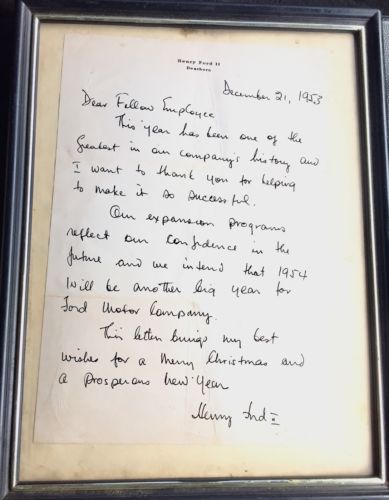 Henry Ford II
Dearborn
December 21, 1953
Dear Fellow Employee
This year has been one of the
greatest in our company's history and
I want to thank you for helping
to make it so successful.
Our expansion programs
reflect our confidence in the
future and we intend that 1954
will be another big year for
Ford Motor Company.
This letter brings my best
wishes for a Merry Christmas and
a prosperous New Year
Henry Ford II